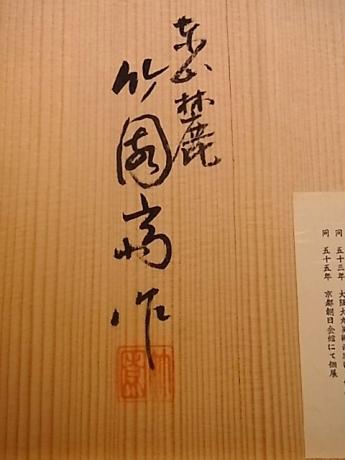 東山麓
竹園作
同 五十三年 大阪大丸美術
同 五十五年 京都朝日会館にて個展